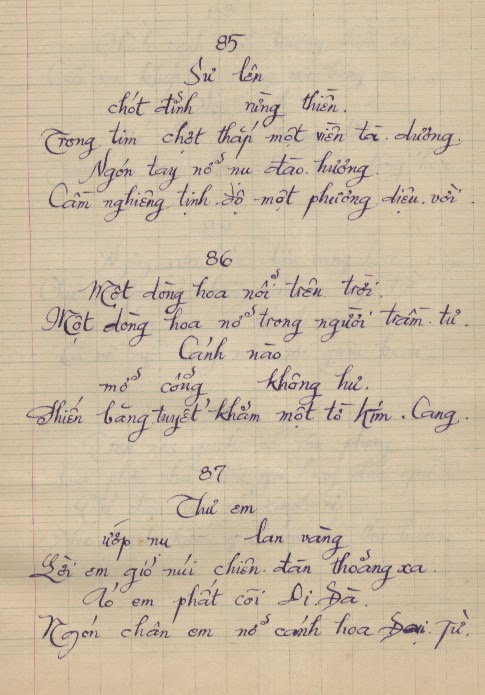 85
Sư lên
chót đỉnh rừng thiền.
Trong tim chợt thắp một viền tà. dương.
Ngón tay nở nụ đào. hương.
Cầm nghiêng tịnh. độ một phương diệu. vời.
86
Một dòng hoa nổi trên trời.
Một dòng hoa nở trong người trầm. tư.
Cánh nào
mở cổng không hư.
Phiến băng tuyết khảm một tờ kim. Cang.
87
Thư em
ướp nụ lan vàng
Lời em gió núi chiên. đàn thoảng xa.
Áo em phất cõi Di. Đà.
Ngón chân em nở cánh hoa Đại. Từ.